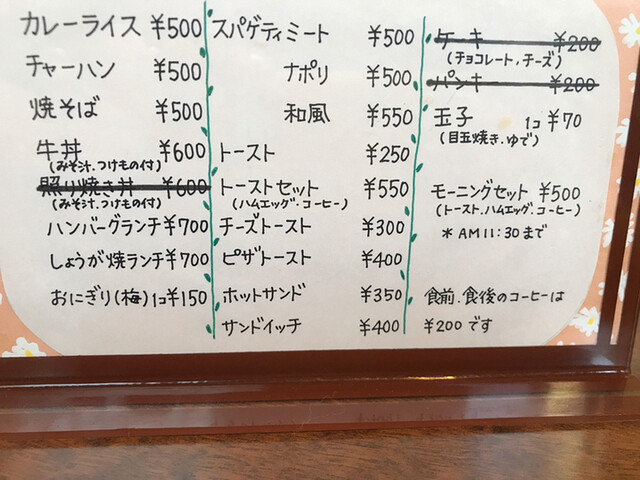 カレーライス ¥500
チャーハン ¥500
焼そば ¥500
牛丼 ¥600
(みそ汁.つけもの付)
照り焼き丼 ¥600
(みそ汁.つけもの付)
ハンバーグランチ ¥700
しょうが焼ランチ ¥700
おにぎり(梅) 1コ ¥150
スパゲティミート ¥500
ナポリ ¥500
和風 ¥550
トースト ¥250
トーストセット ¥550
(ハムエッグ.コーヒー)
チーズトースト ¥300
ピザトースト ¥400
ホットサンド ¥350
サンドイッチ ¥400
ケーキ ¥200
(チョコレート.チーズ)
パンキ ¥200
玉子 1コ ¥70
(目玉焼き.ゆで)
モーニングセット ¥500
(トースト.ハムエッグ.コーヒー)
* AM11:30まで
食前.食後のコーヒーは
¥200です